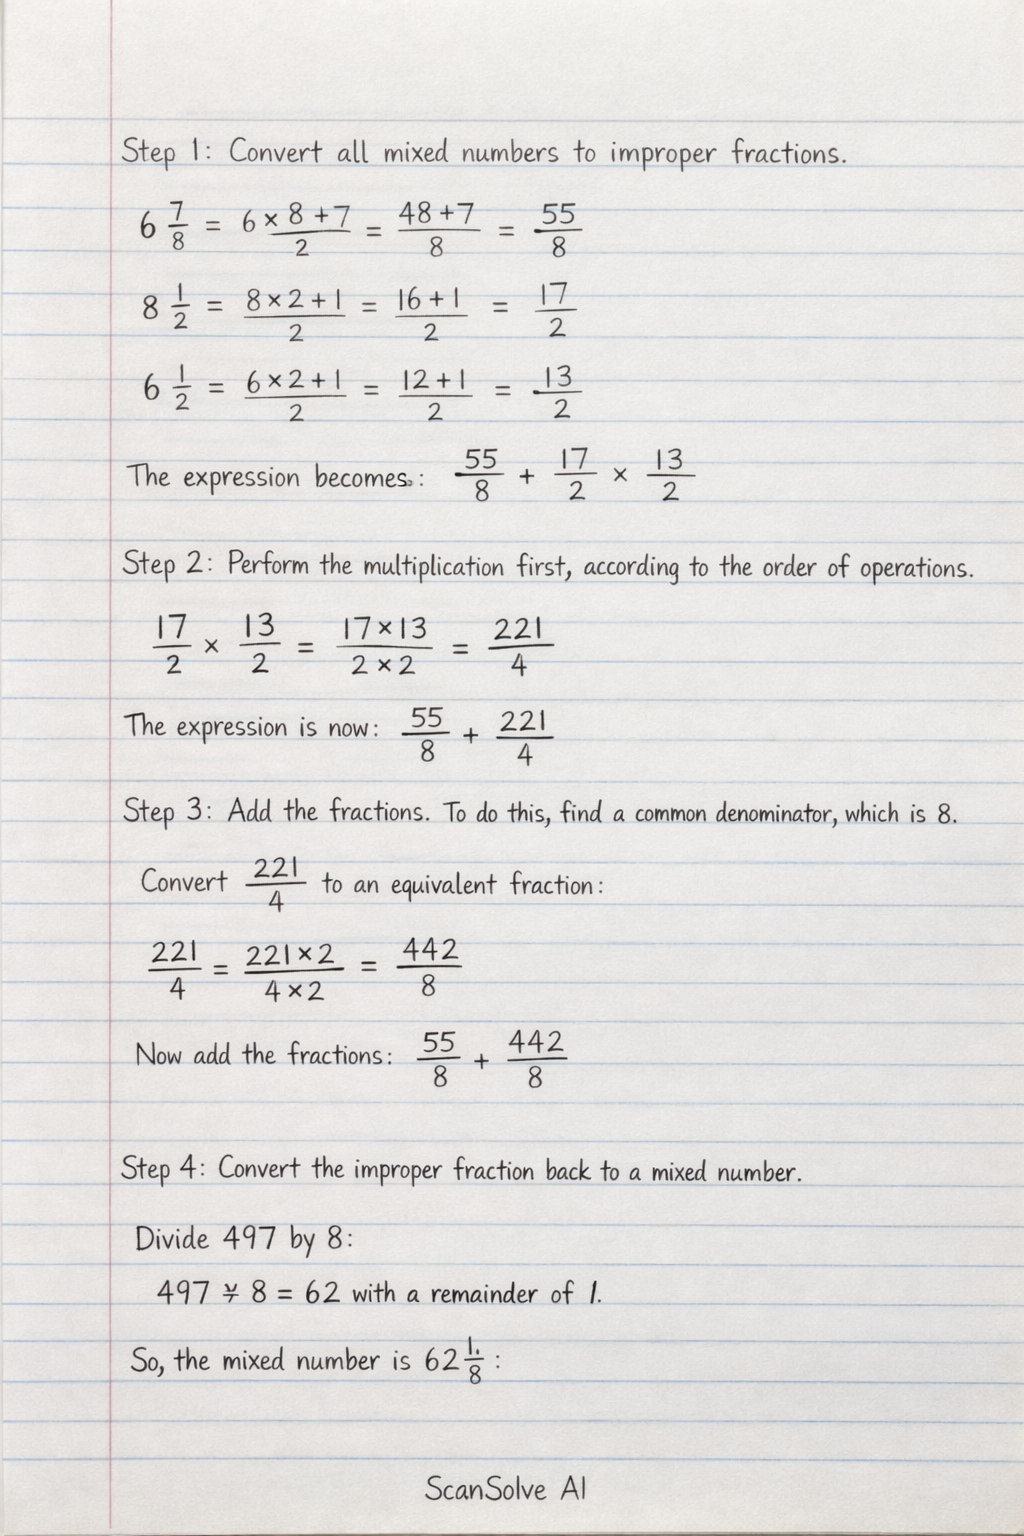 Step 1: Convert all mixed numbers to improper fractions.
6 7/8 = (6 × 8 + 7)/2 = (48 + 7)/8 = 55/8
8 1/2 = (8 × 2 + 1)/2 = (16 + 1)/2 = 17/2
6 1/2 = (6 × 2 + 1)/2 = (12 + 1)/2 = 13/2
The expression becomes: 55/8 + 17/2 × 13/2
Step 2: Perform the multiplication first, according to the order of operations.
17/2 × 13/2 = (17 × 13)/(2 × 2) = 221/4
The expression is now: 55/8 + 221/4
Step 3: Add the fractions. To do this, find a common denominator, which is 8.
Convert 221/4 to an equivalent fraction:
221/4 = (221 × 2)/(4 × 2) = 442/8
Now add the fractions: 55/8 + 442/8
Step 4: Convert the improper fraction back to a mixed number.
Divide 497 by 8:
497 8 = 62 with a remainder of 1.
So, the mixed number is 62 1/8 :
ScanSolve AI